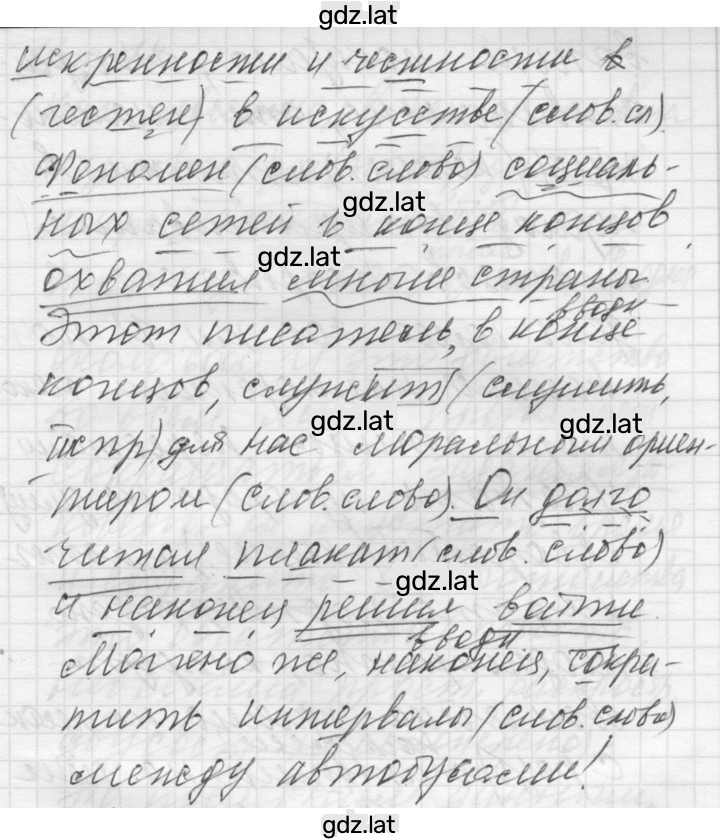 gdz.lat
искренности и честности в
(честен) в искусстве (слов.сл).
Феномен (слов. слово) социаль-
gdz.lat
ных сетей в конце концов
gdz.lat
охватил многие страны.
вводн
Этот писатель, в конце
концов, служит (служить,
gdz.lat
gdz.lat
IIспр) для нас моральным ориен-
тиром (слов. слово). Он долго
читал плакат (слов. слово)
gdz.lat
и наконец решил войти.
вводн
Можно же, наконец, сокра-
тить интервалы (слов. слово)
между автобусами!
gdz.lat